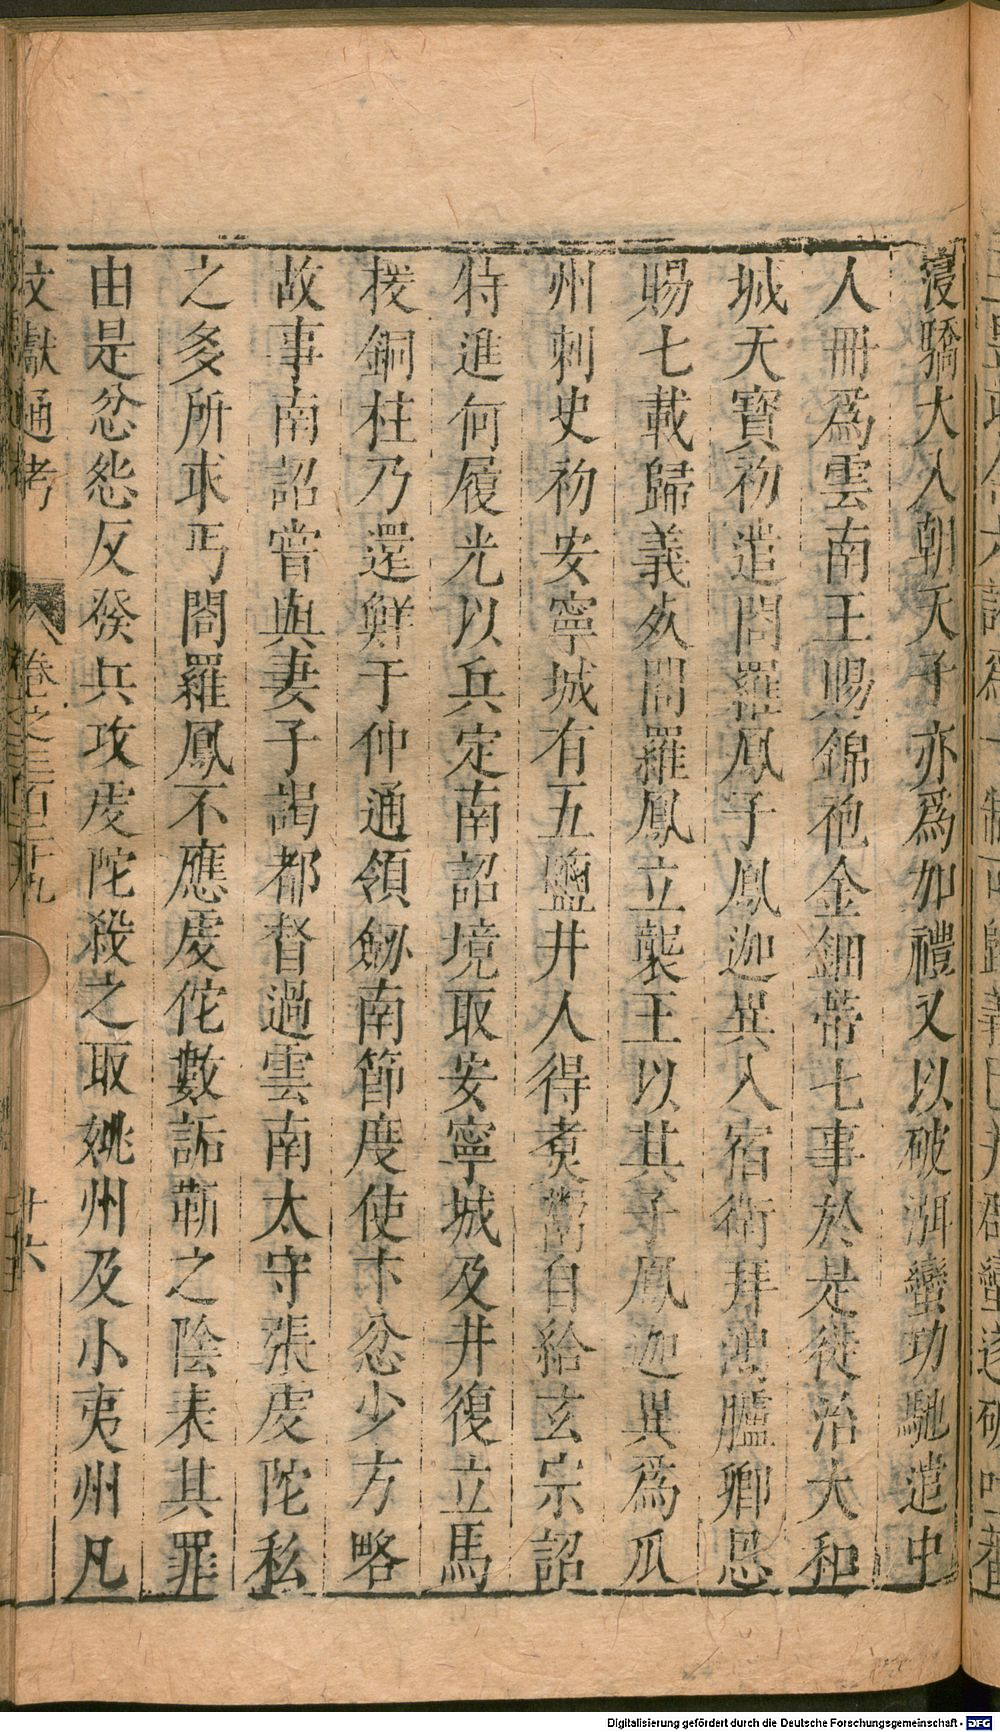 寖驕大入朝天子亦爲加禮又以破洱蠻功馳遣中
人冊爲雲南王賜錦袍金鈿帶七事於是徙治大和
城天寶初遣閤羅鳳子鳳迦異入宿衛拜鴻臚卿恩
賜七載歸義死閤羅鳳立襲王以其子鳳迦異爲瓜
州刺史初安寧城有五鹽井人得煑鬻自給玄宗詔
特進何履光以兵定南詔境取安寧城及井復立馬
援銅柱乃還鮮于仲通領劒南節度使卞忿少方略
故事南詔嘗與妻子謁都督過雲南太守張虔陀私
之多所求丐閤羅鳳不應虔佗數詬靳之陰表其罪
由是忿怨反發兵攻虔陀殺之取姚州及小夷州凡
文獻通考 卷之三百二十九 十六
Digitalisierung gefördert durch die Deutsche Forschungsgemeinschaft - DFG